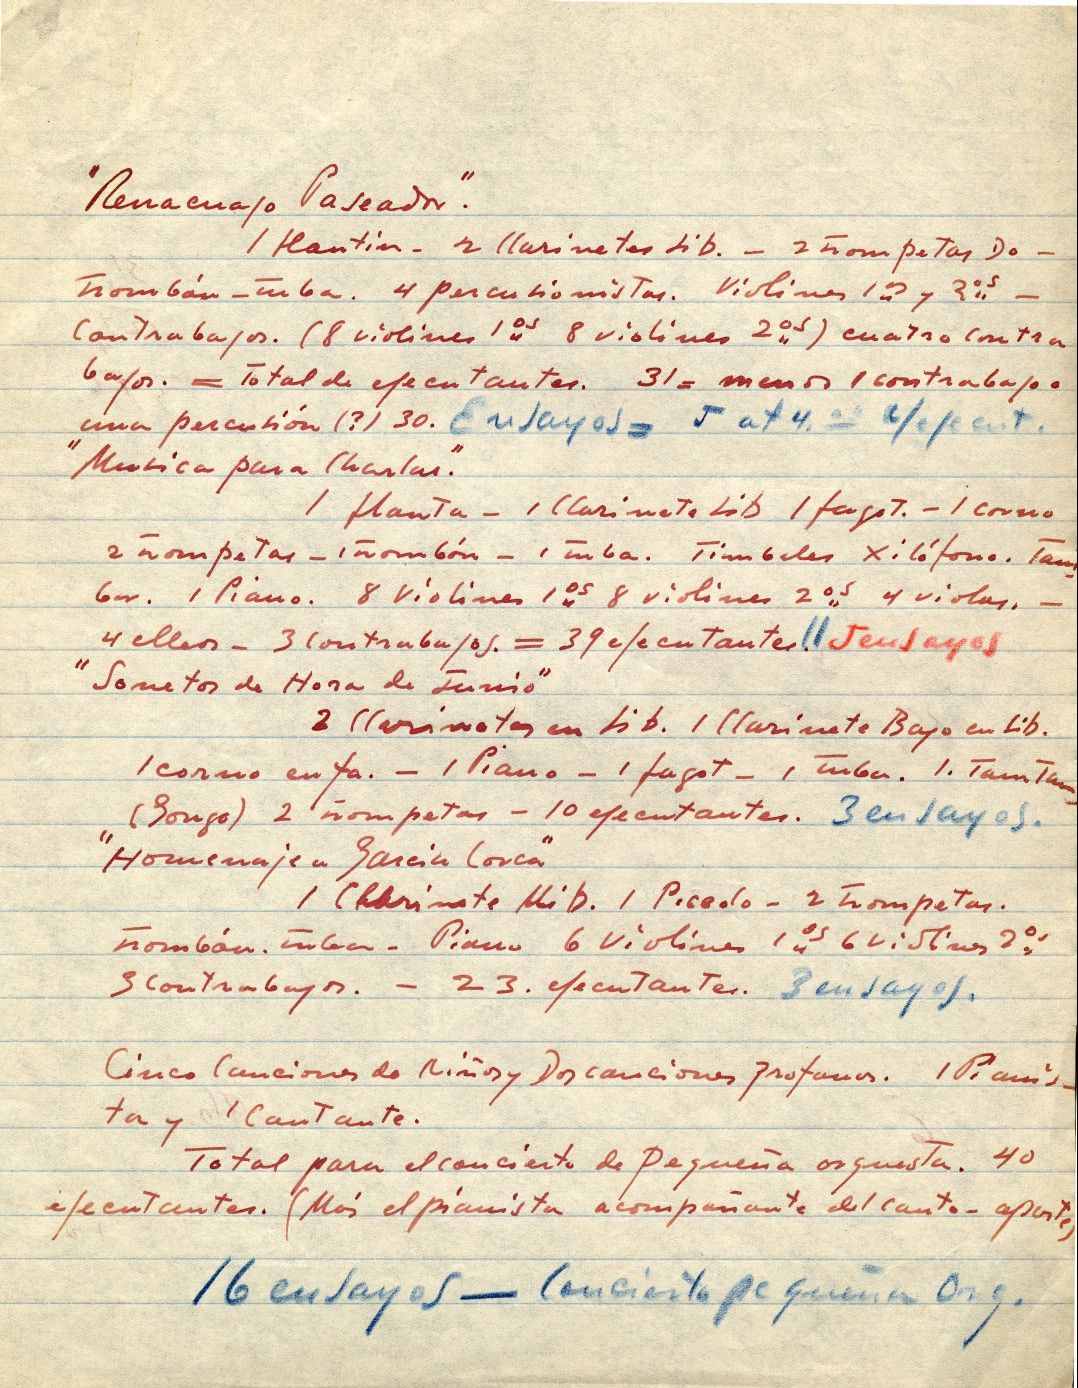 "Renacuajo Paseador".
1 flautin - 2 Clarinetes Sib. - 2 trompetas Do -
trombón - tuba. 4 percusionistas. Violines 1os y 2os -
Contrabajos. (8 violines 1os 8 violines 2os) cuatro contra
bajos. = Total de ejecutantes. 31 = menos 1 contrabajo o
una percusión (?) 30. Ensayos = 5 at 4. ejecut.
"Musica para Charlar".
1 flauta - 1 Clarinete Sib 1 fagot. - 1 corno
2 trompetas - 1 trombón - 1 tuba. Timbales Xilófono. Tam-
bor. 1 Piano. 8 Violines 1os 8 violines 2os 4 violas. -
4 cellos - 3 Contrabajos. = 39 ejecutantes. 5 ensayos
"Sonetos de Hora de Junio"
2 Clarinetes en Sib. 1 Clarinete Bajo en Sib.
1 corno en fa. - 1 Piano - 1 fagot - 1 tuba. 1. Tam Tam
(Gongo) 2 trompetas - 10 ejecutantes. 3 ensayos.
"Homenaje a García Lorca"
1 Clarinete Mib. 1 Picolo - 2 trompetas.
trombón. tuba - Piano 6 violines 1os 6 violines 2os
3 contrabajos. - 23. ejecutantes. 3 ensayos.
Cinco Canciones de Niños y Dos canciones profanas. 1 Pianis-
ta y 1 Cantante.
Total para el concierto de pequeña orquesta. 40
ejecutantes. (Más el pianista acompañante del canto - aparte)
16 ensayos — Concierto pequeña Orq.